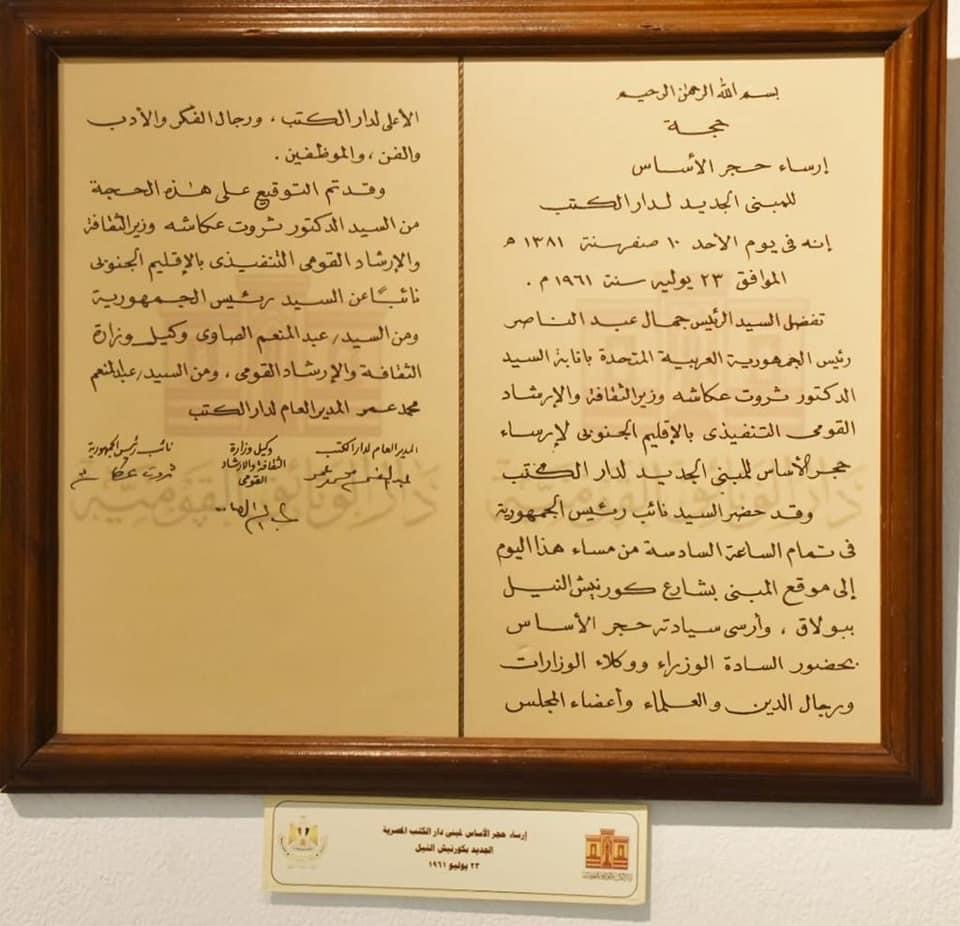 بسم الله الرحمن الرحيم
حجة
إرساء حجر الأساس
للمبنى الجديد لدار الكتب
إنه في يوم الأحد ١٠ صفر سنة ١٣٨١ هـ
الموافق ٢٣ يوليه سنة ١٩٦١ م .
تفضل السيد الرئيس جمال عبد الناصر
رئيس الجمهورية العربية المتحدة بإنابة السيد
الدكتور ثروت عكاشه وزير الثقافة والإرشاد
القومى التنفيذى بالإقليم الجنوبى لإرساء
حجر الأساس للمبنى الجديد لدار الكتب
وقد حضر السيد نائب رئيس الجمهورية
فى تمام الساعة السادسة من مساء هذا اليوم
إلى موقع المبنى بشارع كورنيش النيل
ببولاق ، وأرسى سيادته حجر الأساس
بحضور السادة الوزراء ووكلاء الوزارات
ورجال الدين والعلماء وأعضاء المجلس
الأعلى لدار الكتب ، ورجال الفكر والأدب
والفن ، والموظفين .
وقد تم التوقيع على هذه الحجة
من السيد الدكتور ثروت عكاشه وزير الثقافة
والإرشاد القومى التنفيذى بالإقليم الجنوبى
نائبًا عن السيد رئيس الجمهورية
ومن السيد/ عبد المنعم الصاوى وكيل وزارة
الثقافة والإرشاد القومى ، ومن السيد/ عبد المنعم
محمد عمر المدير العام لدار الكتب
المدير العام لدار الكتب
وكيل وزارة
الثقافة والارشاد
القومى
نائب رئيس الجمهورية
ثروت عكاشه
دار الوثائق القومية
دار الوثائق القومية
إرساء حجر الأساس لمبنى دار الكتب المصرية
الجديد بكورنيش النيل
٢٣ يوليو ١٩٦١